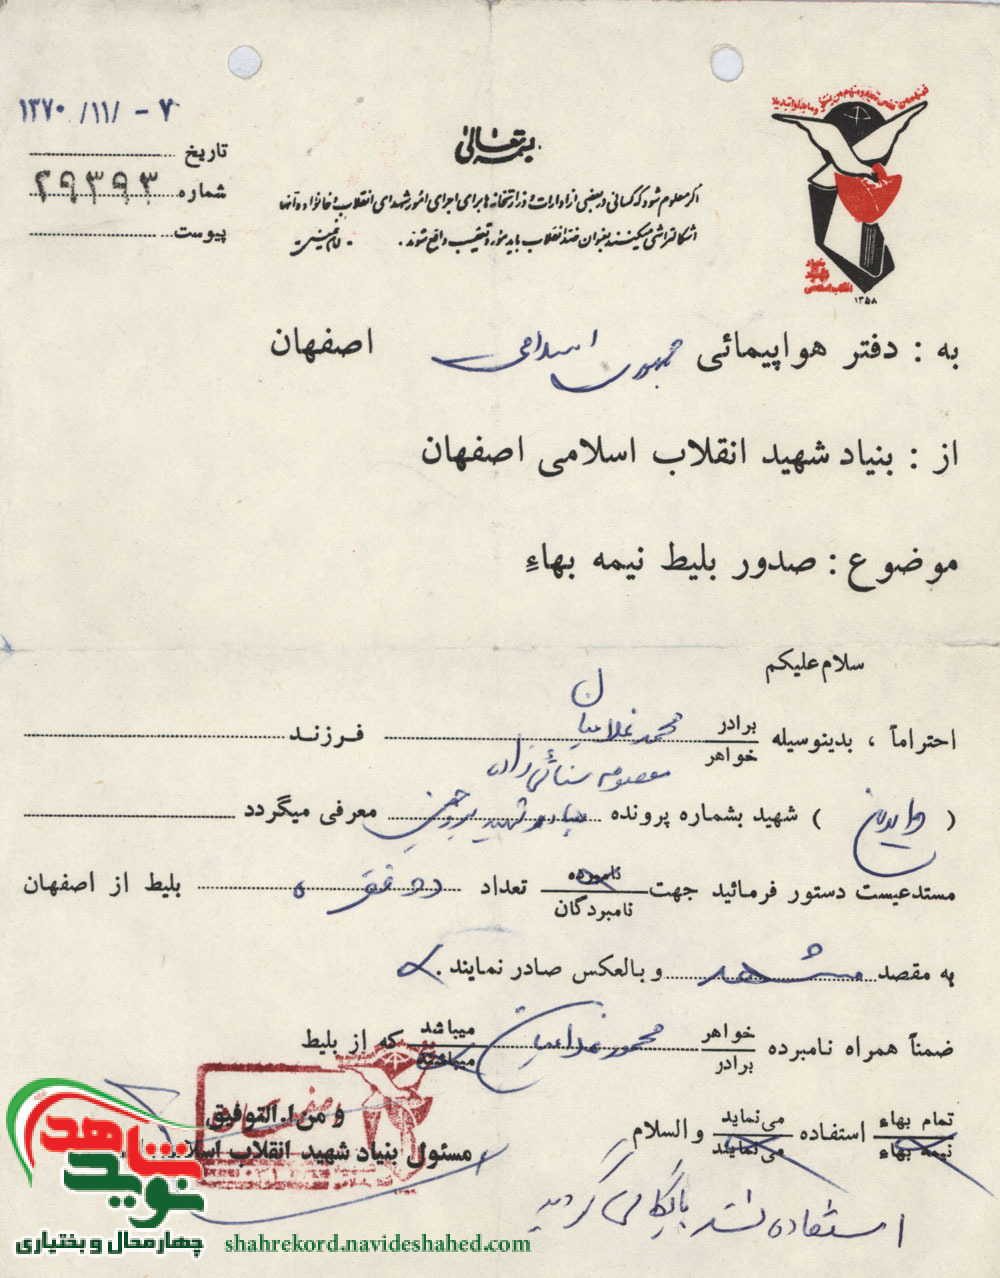 ۱۳۷۰ /۱۱/ - ۷
بسمه تعالی
تاریخ
شماره ۲۹۳۹۳
پیوست
اگر معلوم شود که کسانی در بعضی از ادارات و وزارتخانه ها برای اجرای امور شهدای انقلاب و خانواده آنها
اشکالتراشی میکنند بعنوان ضد انقلاب باید مورد تعقیب واقع شوند. - امام خمینی -
بنیاد شهید انقلاب اسلامی
۱۳۵۸
به : دفتر هواپیمائی جمهوری اسلامی اصفهان
از : بنیاد شهید انقلاب اسلامی اصفهان
موضوع : صدور بلیط نیمه بهاء
سلام علیکم
احتراماً ، بدینوسیله برادر خواهر محمد غلامیان فرزند
معصومه سنائی زاده
( والدین ) شهید بشماره پرونده معرفی میگردد
مستدعیست دستور فرمائید جهت نامبرده نامبردگان تعداد دو بلیط از اصفهان
به مقصد مشهد و بالعکس صادر نمایند .
ضمناً همراه نامبرده خواهر برادر میباشد میباشند که از بلیط
تمام بهاء نیمه بهاء استفاده می نماید می نمایند و السلام
و من ا.. التوفیق
مسئول بنیاد شهید انقلاب
استفاده نشد بایگانی گردید
نوید شاهد
چهارمحال و بختیاری
shahrekord.navideshahed.com